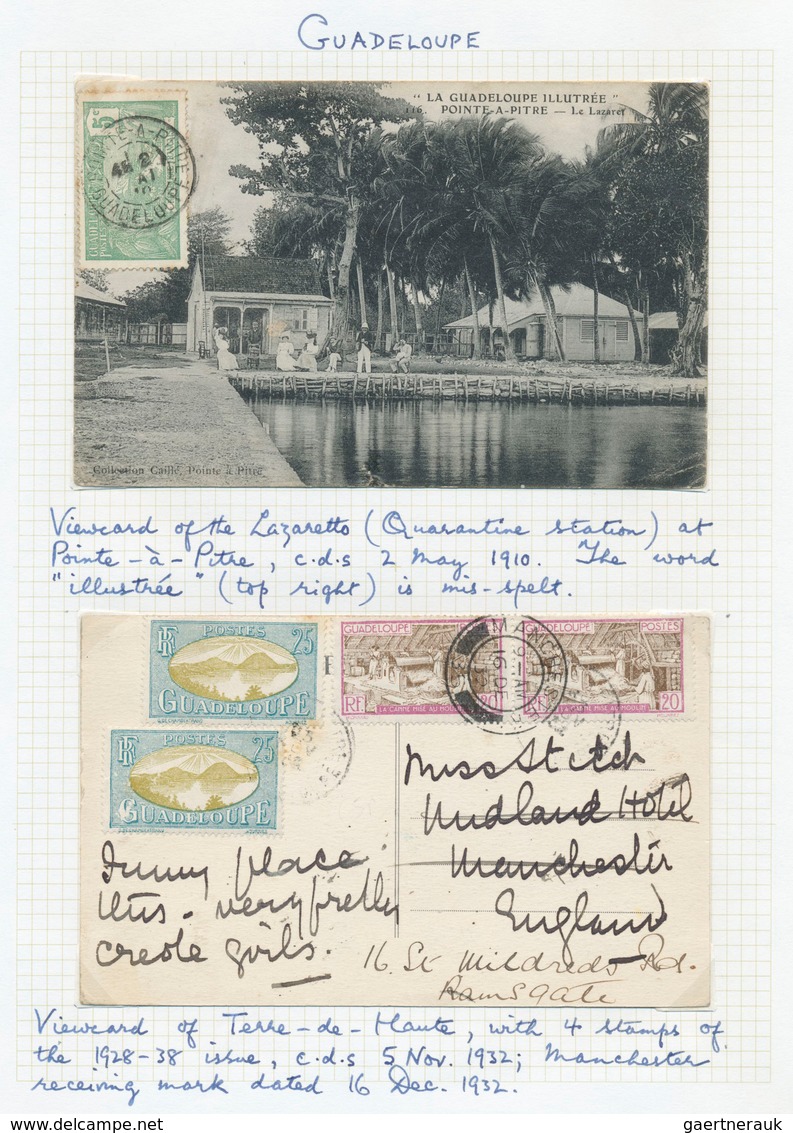 GUADELOUPE
"LA GUADELOUPE ILLUTRÉE"
116. POINTE-A-PITRE — Le Lazaret
5c
POINTE-A-PITRE
GUADELOUPE
Collection Caillé, Pointe à Pitre
Viewcard of the Lazaretto (Quarantine station) at
Pointe-à-Pitre, c.d.s 2 May 1910. The word
"illustrée" (top right) is mis-spelt.
RF POSTES 25
GUADELOUPE
RF POSTES 25
GUADELOUPE
GUADELOUPE
RF 20
LA CANNE MISE AU MOULIN
GUADELOUPE POSTES
RF 20
LA CANNE MISE AU MOULIN
MANCHESTER
16 DE
Miss Stitch
Midland Hotel
Manchester
England
16. St Mildreds Rd.
Ramsgate
Funny place
this - very pretty
creole girls.
Viewcard of Terre-de-Haute, with 4 stamps of
the 1928-38 issue, c.d.s 5 Nov. 1932; Manchester
receiving mark dated 16 Dec. 1932.
gaertnerauk